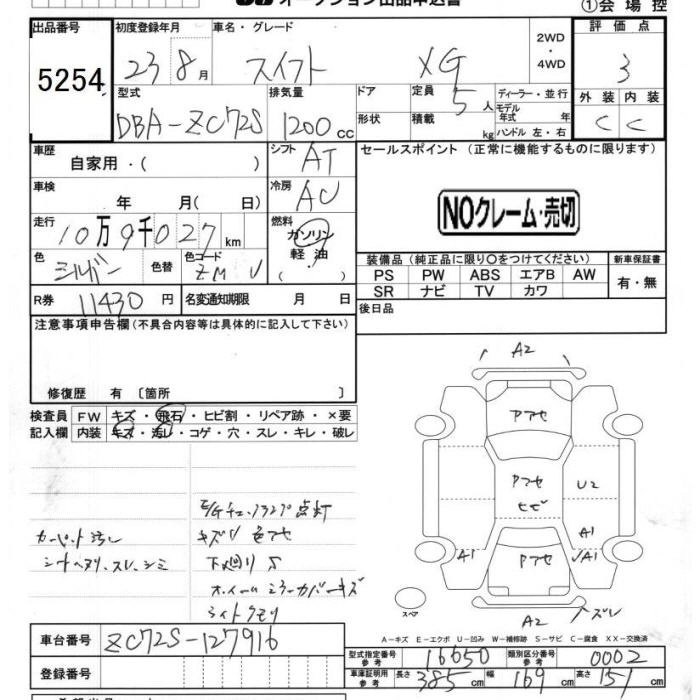 オークション出品申込書
①会場控
出品番号 初度登録年月 車名・グレード 2WD・4WD 評価点
5254 23 8月 スイフト XG 3
型式 排気量 ドア 定員 5人 ディーラー・並行 外装 内装
DBA-ZC72S 1200cc 形状 積載 kg モデル年式 年 ハンドル 左・右 C C
車歴 自家用・( ) シフト AT セールスポイント (正常に機能するものに限ります)
車検 年 月( 日) 冷房 AC
NOクレーム・売切
走行 10万9千027km 燃料 ガソリン 軽油 ( )
色 シルバー 色替 色コード ZMU
装備品(純正品に限り〇をつけてください) 新車保証書
PS PW ABS エアB AW 有・無
SR ナビ TV カワ
R券 11430円 名変通知期限 月 日 後日品
注意事項申告欄(不具合内容等は具体的に記入して下さい)
修復歴 有 〔箇所 〕
検査員記入欄 FW キズ・飛石・ヒビ割・リペア跡・×要
内装 キズ・汚レ・コゲ・穴・スレ・キレ・破レ
A2
アセ
アセ U2
ヒビ
A1
A1 アセ A1
スペア
A2 ズレ
E/Gチェックランプ点灯
カーペット汚レ キズU 色アセ
シートヘタリ、スレ、シミ 下廻りS
ホイールミラーカバーキズ
ライトクモリ
A-キズ E-エクボ U-凹み W-補修跡 S-サビ C-腐食 XX-交換済
車台番号 ZC72S-127916
型式指定番号 参考 16650 類別区分番号 参考 0002
登録番号
車庫証明用 参考 長さ 385cm 幅 169cm 高さ 151cm